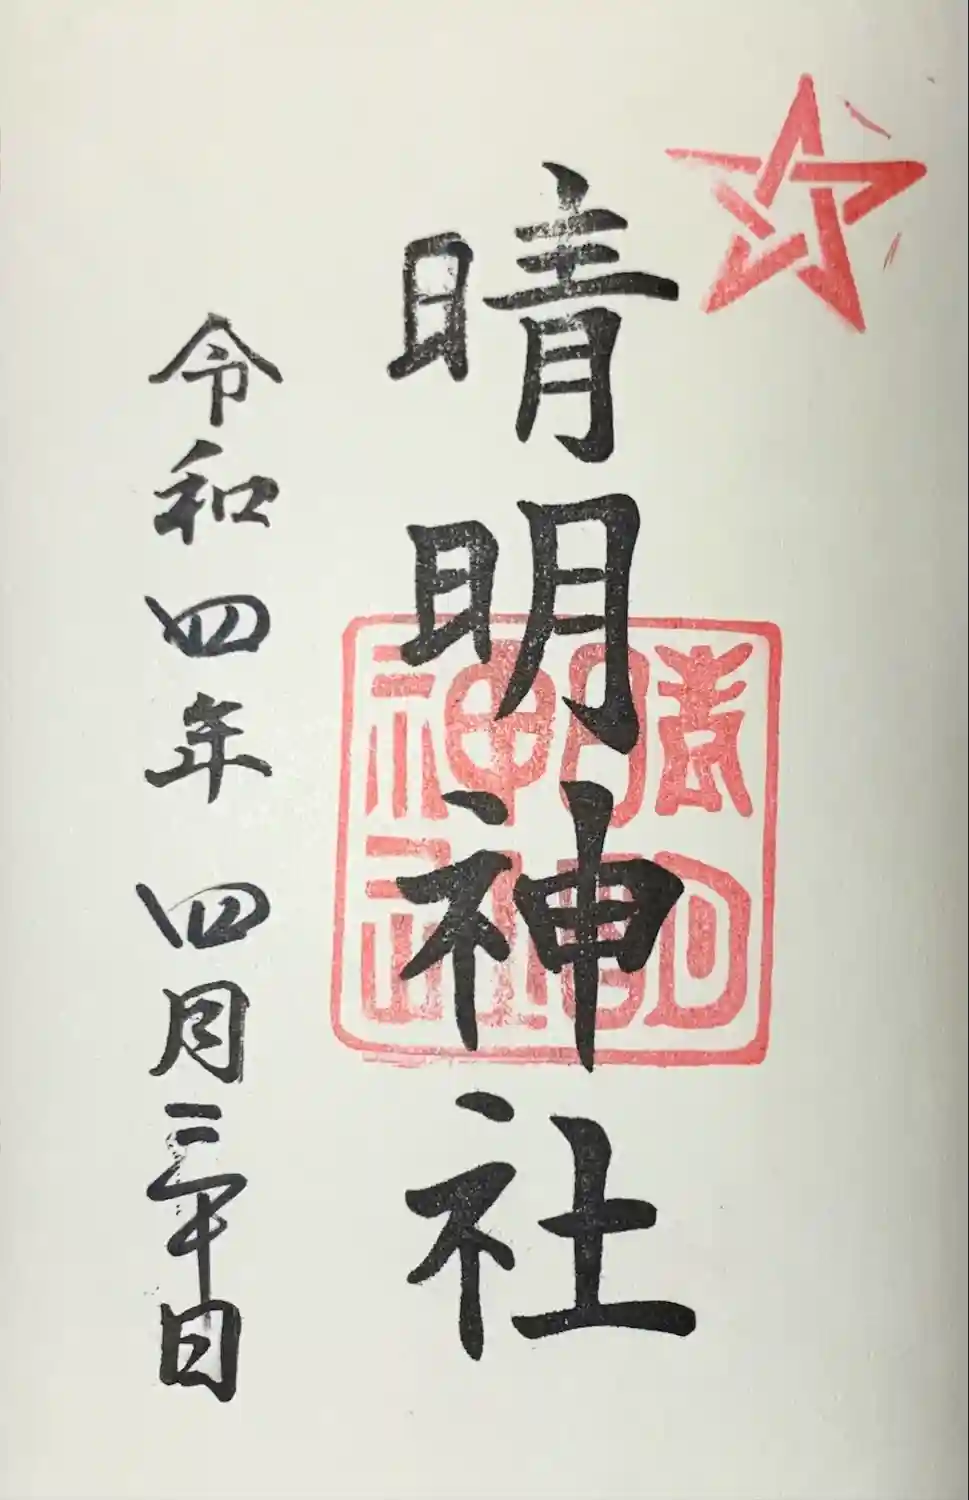 晴明神社
晴明神社
令和四年四月三十日